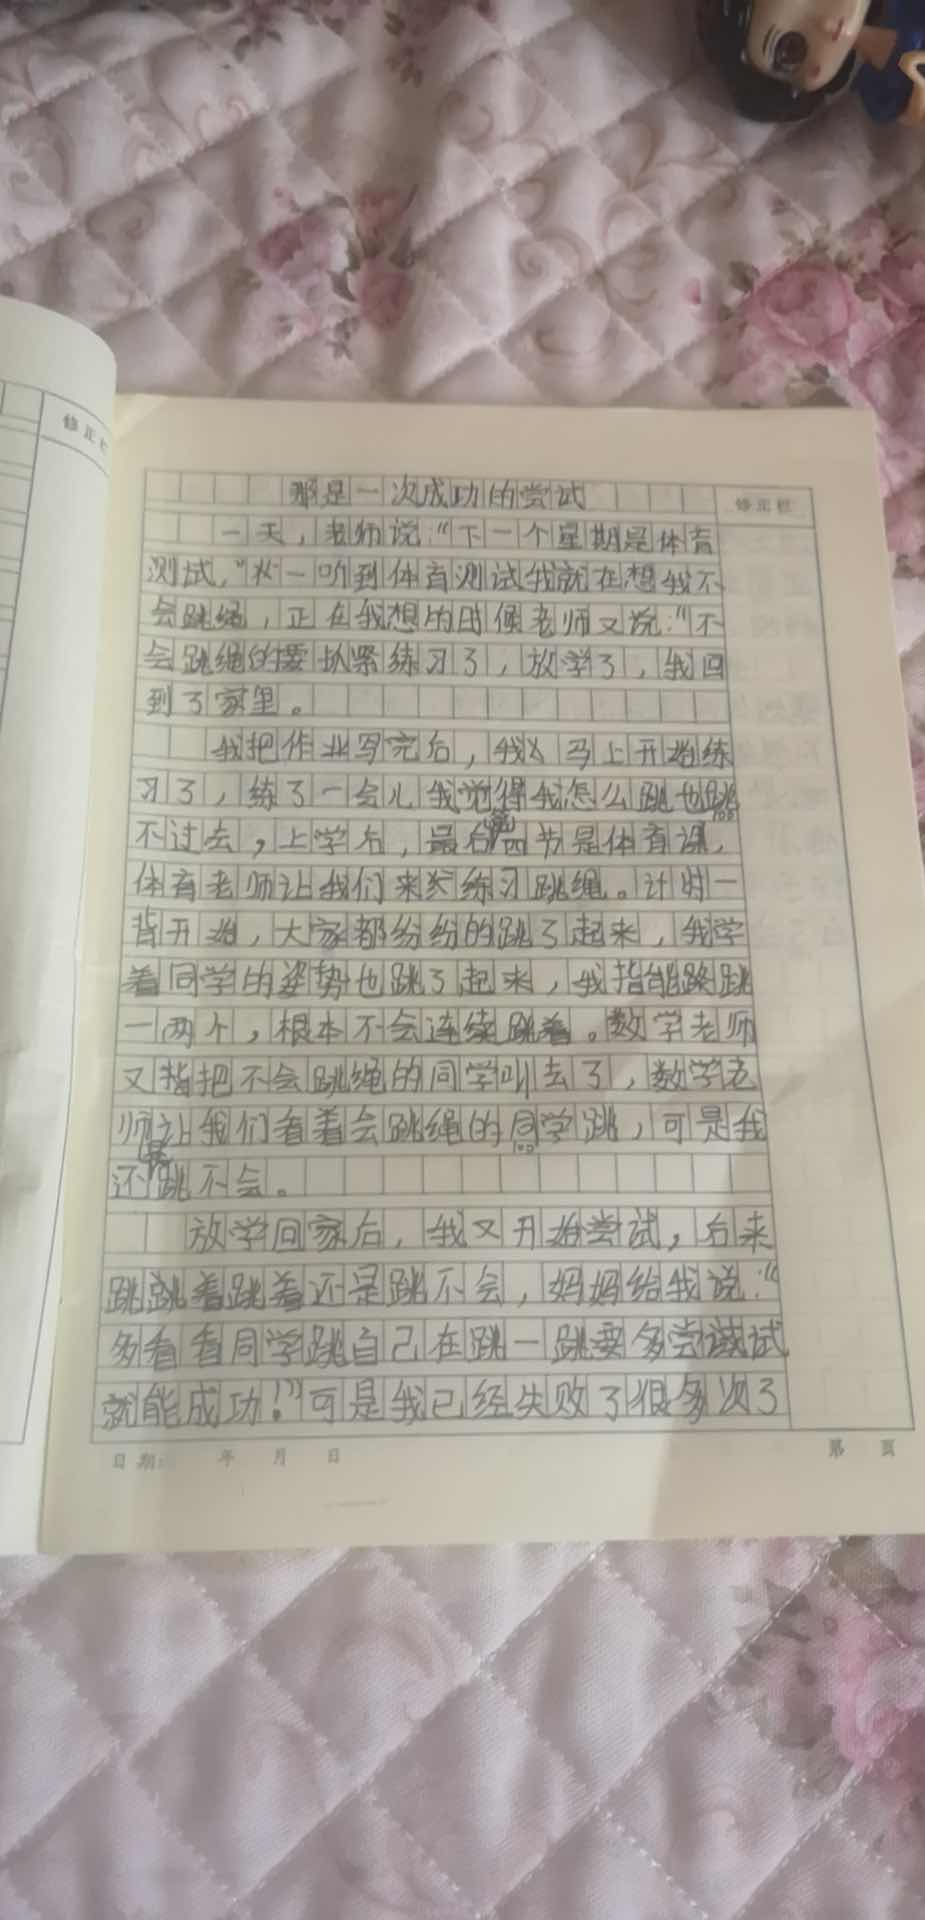 修正栏
那是一次成功的尝试
修正栏
一天，老师说：“下一个星期是体育
测试，”一听到体育测试我就在想我不
会跳绳，正在我想的时候老师又说：“不
会跳绳的要抓紧练习了，放学了，我回
到了家里。
我把作业写完后，我马上开始练
习了，练了一会儿我觉得我怎么跳也跳
不过去，上学后，最后第四节是体育课，
体育老师让我们来练习跳绳。计时一
背开始，大家都纷纷的跳了起来，我学
着同学的姿势也跳了起来，我指能跳
一两个，根本不会连续跳着。数学老师
又把不会跳绳的同学叫去了，数学老
师让我们看着会跳绳的同学跳，可是我
还是跳不会。
放学回家后，我又开始尝试，后来
跳跳着跳着还是跳不会，妈妈给我说：“
多看看同学跳自己在跳一跳要多尝试
就能成功！”可是我已经失败了很多次了
日期： 年 月 日 第 页